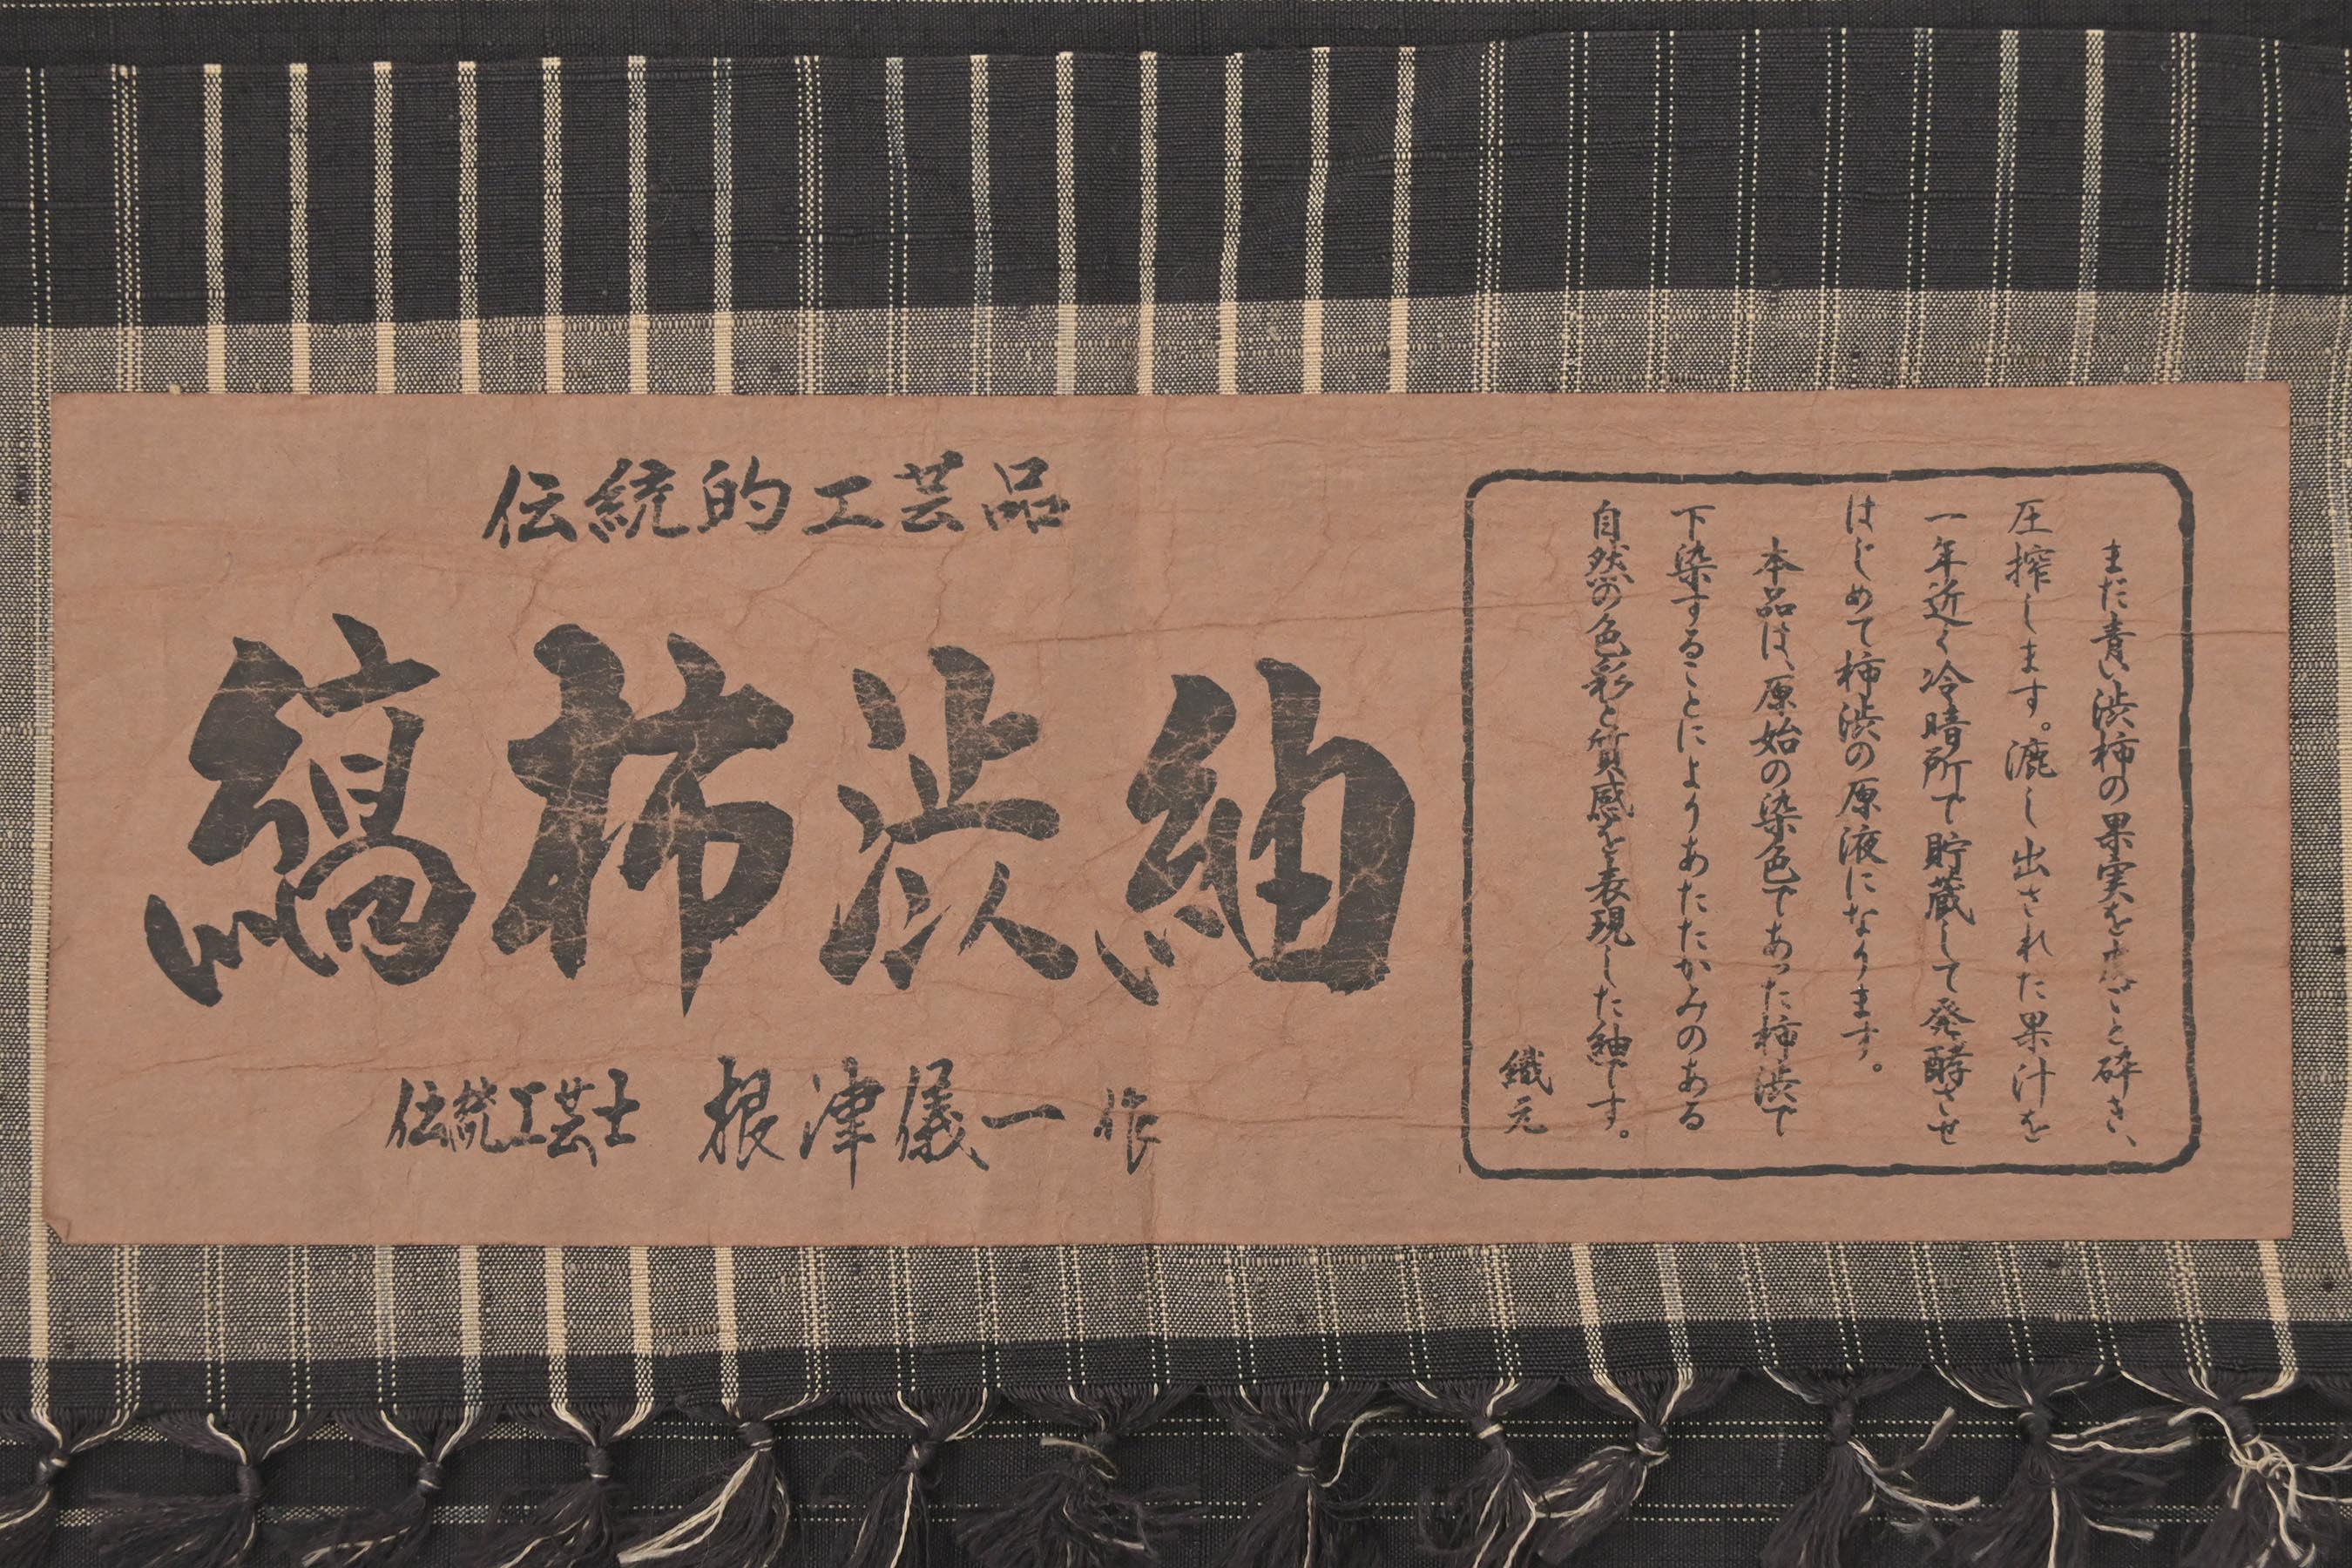 伝統的工芸品
縞柿渋紬
伝統工芸士 根津儀一 作
まだ青い渋柿の果実をごと砕き、
圧搾します。漉し出された果汁を
一年近く冷暗所で貯蔵して発酵させ
はじめて柿渋の原液になります。
本品は、原始の染色であった柿渋で
下染することによりあたたかみのある
自然の色彩と質感を表現した紬です。
織元